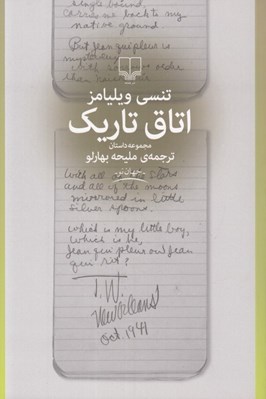 single bound,
carries me back to my
native ground.
But Jean qui pleure is
تنسی ویلیامز
اتاق تاریک
مجموعه داستان
ترجمه‌ی ملیحه بهارلو
جهان نو
With all of the stars
and all of the moons
mirrored in little
silver spoons.
which is my little boy,
which is he,
Jean qui pleure ou Jean
qui rit?
T. W.
New Orleans
Oct 1941